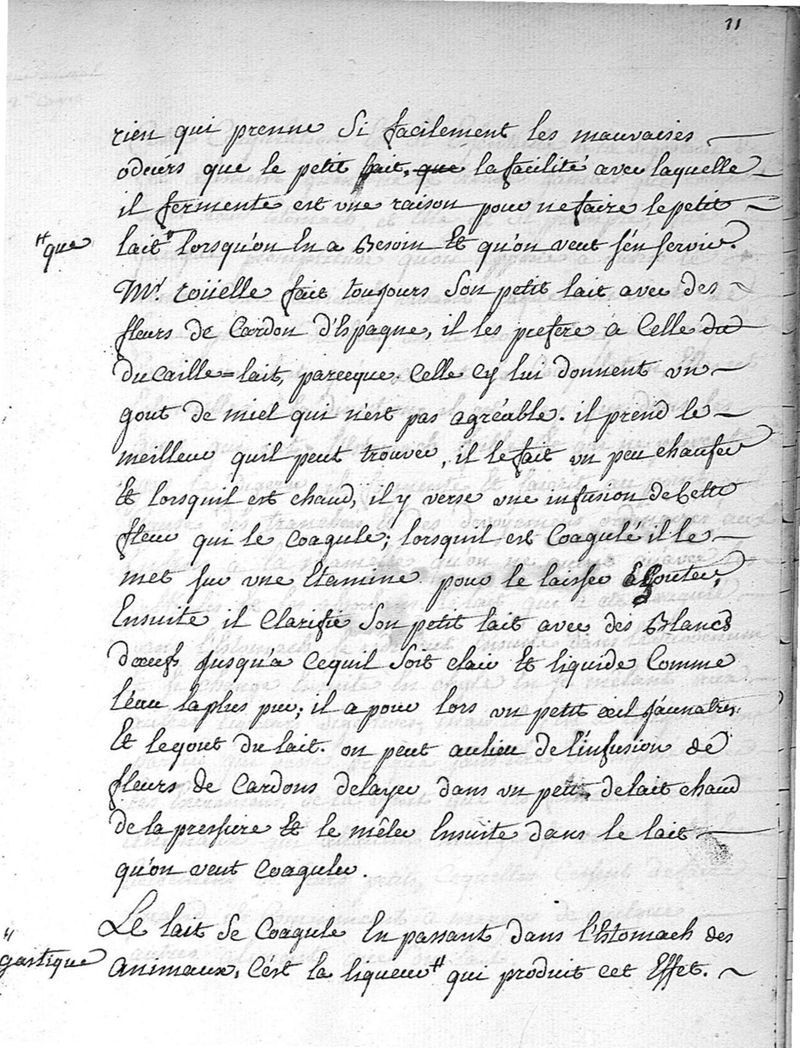 11
rien qui prenne si facilement les mauvaises
odeurs que le petit lait, que la facilité avec laquelle
il fermente est une raison pour ne faire le petit
"que
lait" lorsqu'on En a Besoin Et qu'on veut s'en servir.
Mr. roüelle fait toujours Son petit lait avec des
fleurs de Cardon d'Espagne, il les prefere a Celle du
du Caille=lait, parceque Celle Cy lui donnent un
gout de miel qui n'est pas agréable. il prend le
meilleur quil peut trouver, il le fait un peu chaufer
Et lorsquil est chaud, il y verse une infusion de Cette
fleur qui le Coagule; lorsquil est Coagulé il le
met sur une Etamine pour le laisser Egouter,
Ensuite il Clarifie Son petit lait avec des Blancs
d'œufs jusqu'a Cequil Soit clair Et liquide Comme
l'eau la plus pure; il a pour lors un petit œil jaunatre
Et le gout du lait. on peut aulieu de l'infusion de
fleurs de Cardons delayer dans un peu de lait chaud
de la pressure Et le mêler Ensuite dans le lait
qu'on veut Coaguler.
Le lait Se Coagule En passant dans l'Estomach des
"
gastique
Animaux, C'est la liqueur" qui produit cet Effet.